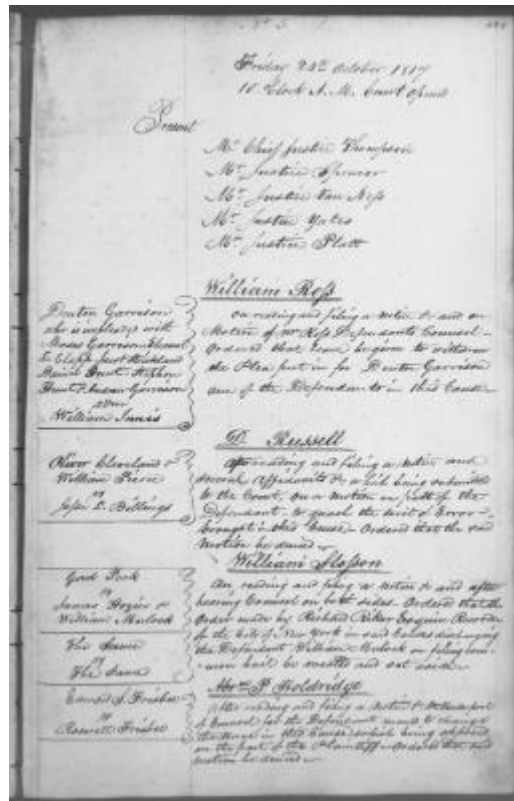 Friday 24th October 1817
10 Clock A. M. Court opened
Present
Mr. Chief Justice Thompson
Mr. Justice Spencer
Mr. Justice Van Ness
Mr. Justice Yates
Mr. Justice Platt
William Ross
Denton Garrison
who is impleaded with
Moses Garrison
Hunt
Garrison
adsm
William Innis
On reading and filing a notice &c and on
Motion of Mr Ross Defendants Counsel
Ordered that leave be given to withdraw
the Plea put in for Denton Garrison
one of the Defendants in this Cause
D. Russell
Oliver Cleveland &
William Pierce
vs
Jesse L. Billings
After reading and filing a notice and
several affidavits &c which being submitted
to the Court, on a motion on part of the
Defendant to quash the writ of Error
brought in this Cause Ordered that the said
motion be denied
William Slosson
Gad Peck
vs
James Hozier &
William Mulock
The Same
vs
The Same
On reading and filing a notice &c and after
hearing Counsel on both sides Ordered that the
Order made by Richard Riker Esquire Recorder
of the City of New York in said Causes discharging
the Defendant William Mulock on filing com-
mon bail be vacated and set aside
P. Holdridge
Edward S. Frisbee
vs
Roswell Frisbee
After reading and filing a notice &c
of Counsel for the Defendant to change
the Venue in this Cause which being opposed
on the part of the Plaintiff Ordered that said
motion be denied